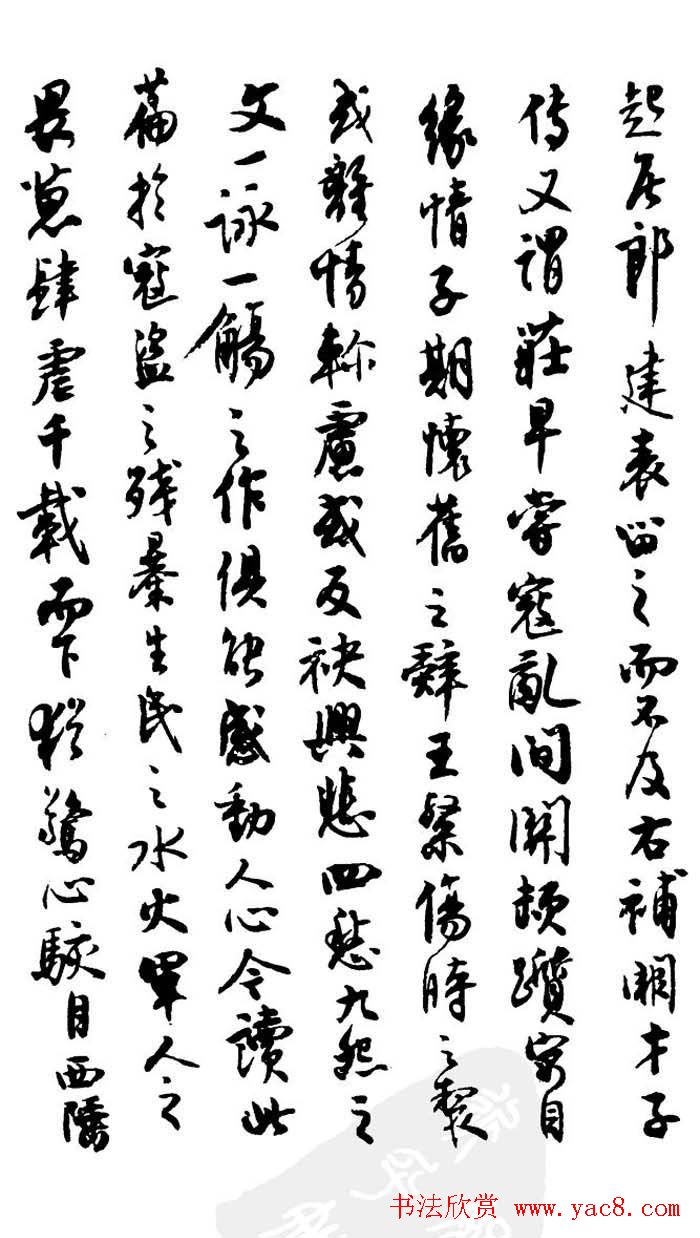 起居郎建表留之而不及右補闕才子
傳又謂莊早嘗寇亂間關頓躓寓目
緣情子期懷舊之辭王粲傷時之製
或離情軫慮或反袂興悲四愁九怨之
文一詠一觴之作俱能感動人心今讀此
篇於寇盜之残暴生民之水火軍人之
畏葸肆虐千載而下猶驚心駭目西
书法欣赏 www.yac8.com